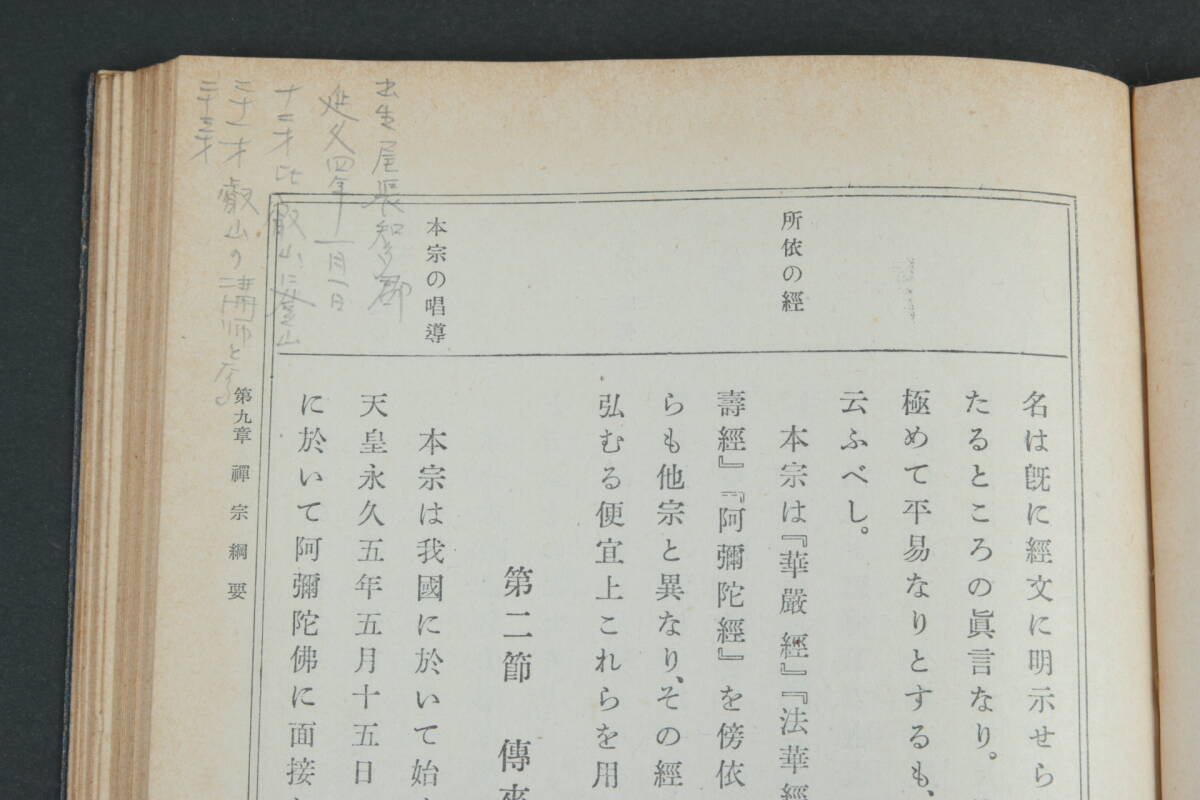 所依の經
本宗の唱導
名は旣に經文に明示せら
たるところの眞言なり。
極めて平易なりとするも、
云ふべし。
本宗は『華嚴經』『法華經
壽經』『阿彌陀經』を傍依
らも他宗と異なり、その經
弘むる便宜上これらを用
第二節 傳來
本宗は我國に於いて始
天皇永久五年五月十五日
に於いて阿彌陀佛に面接
第九章 禪宗綱要
出生 尾張知多郡
延久四年一月一日
十二才比叡山に登山
二十一才 叡山の講師と
二十三才